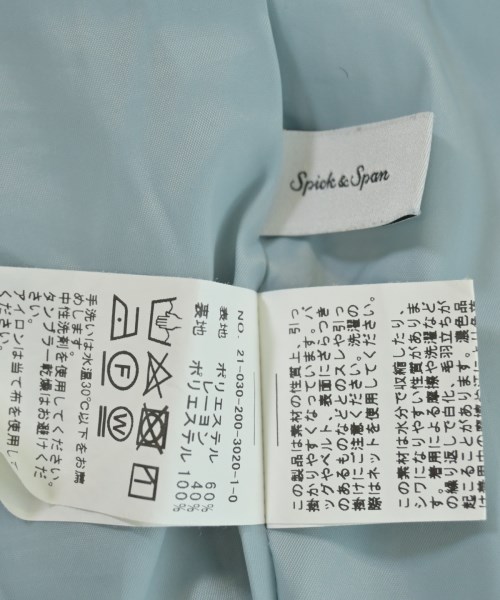 Spick & Span
NO. 21-030-200-3020-1-0
表地 ポリエステル 60%
レーヨン 40%
裏地 ポリエステル 100%
手洗いは水温30℃以下をお薦
めします。
中性洗剤を使用してください。
タンブラー乾燥はお避けくだ
さい。
アイロンは当て布を使用し
ください。
この製品は素材の性質上、引っ
掛かりやすくなっています。バ
ッグやベルト、表面にざらつき
のあるものなどとのスレや引っ
掛けにご注意ください。洗濯の
際はネットを使用してください。
この素材は水分で収縮したり、
シワになりやすい性質がありま
す。着用による摩擦や洗濯など
の繰り返しで白化、毛羽立ちが
起こることがあります。濃色品